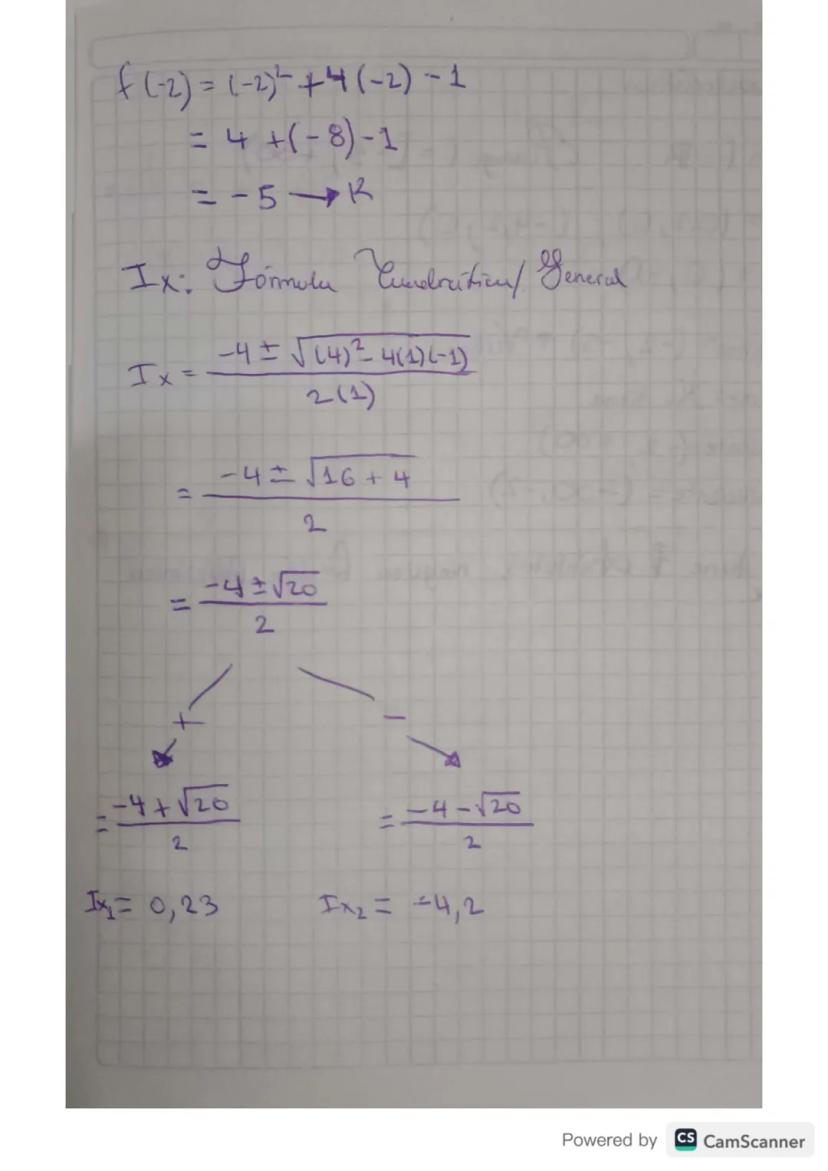 f(-2) = (-2)² + 4(-2) - 1
= 4 + (-8) - 1
= -5 → K
Ix: Fórmula Cuadrática/ General
Ix = (-4 ± √((4)² - 4(1)(-1))) / 2(1)
= (-4 ± √(16 + 4)) / 2
= (-4 ± √20) / 2
+ −
= (-4 + √20) / 2 = (-4 - √20) / 2
Ix₁ = 0,23 Ix₂ = -4,2
Powered by CS CamScanner